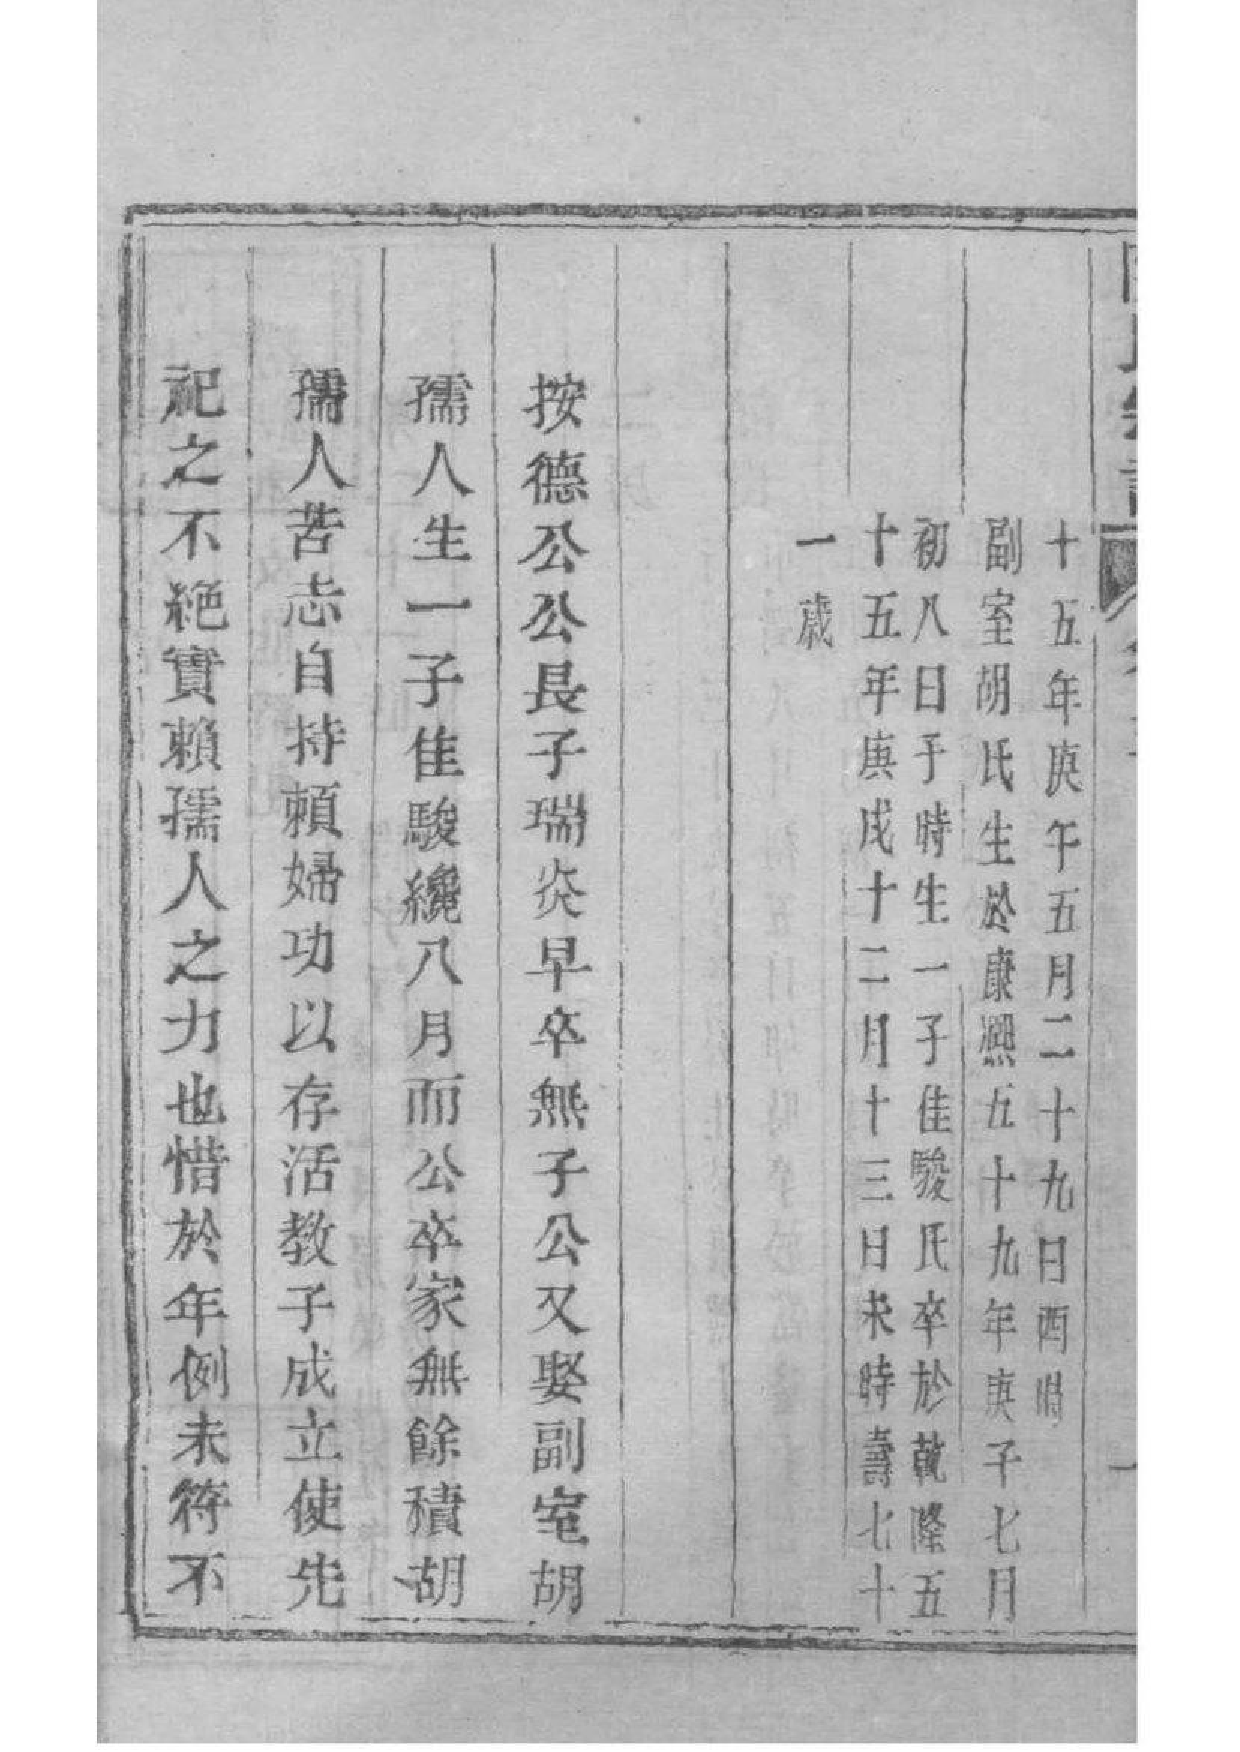 氏宗譜
十五年庚午五月二十九日酉時
副室胡氏生於康熙五十九年庚子七月
初八日子時生一子佳駿氏卒於乾隆五
十五年庚戌十二月十三日未時壽七十
一歲
按德公公長子瑞炎早卒無子公又娶副室胡
孺人生一子佳駿纔八月而公卒家無餘積胡
孺人苦志自持頼婦功以存活教子成立使先
祀之不絕實賴孺人之力也惜於年例未符不